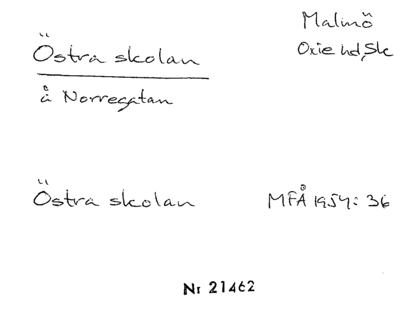 Malmö
Oxie hd, Sk
Östra skolan
å Norregatan
Östra skolan
MFÅ 1954: 36
Nr 21462